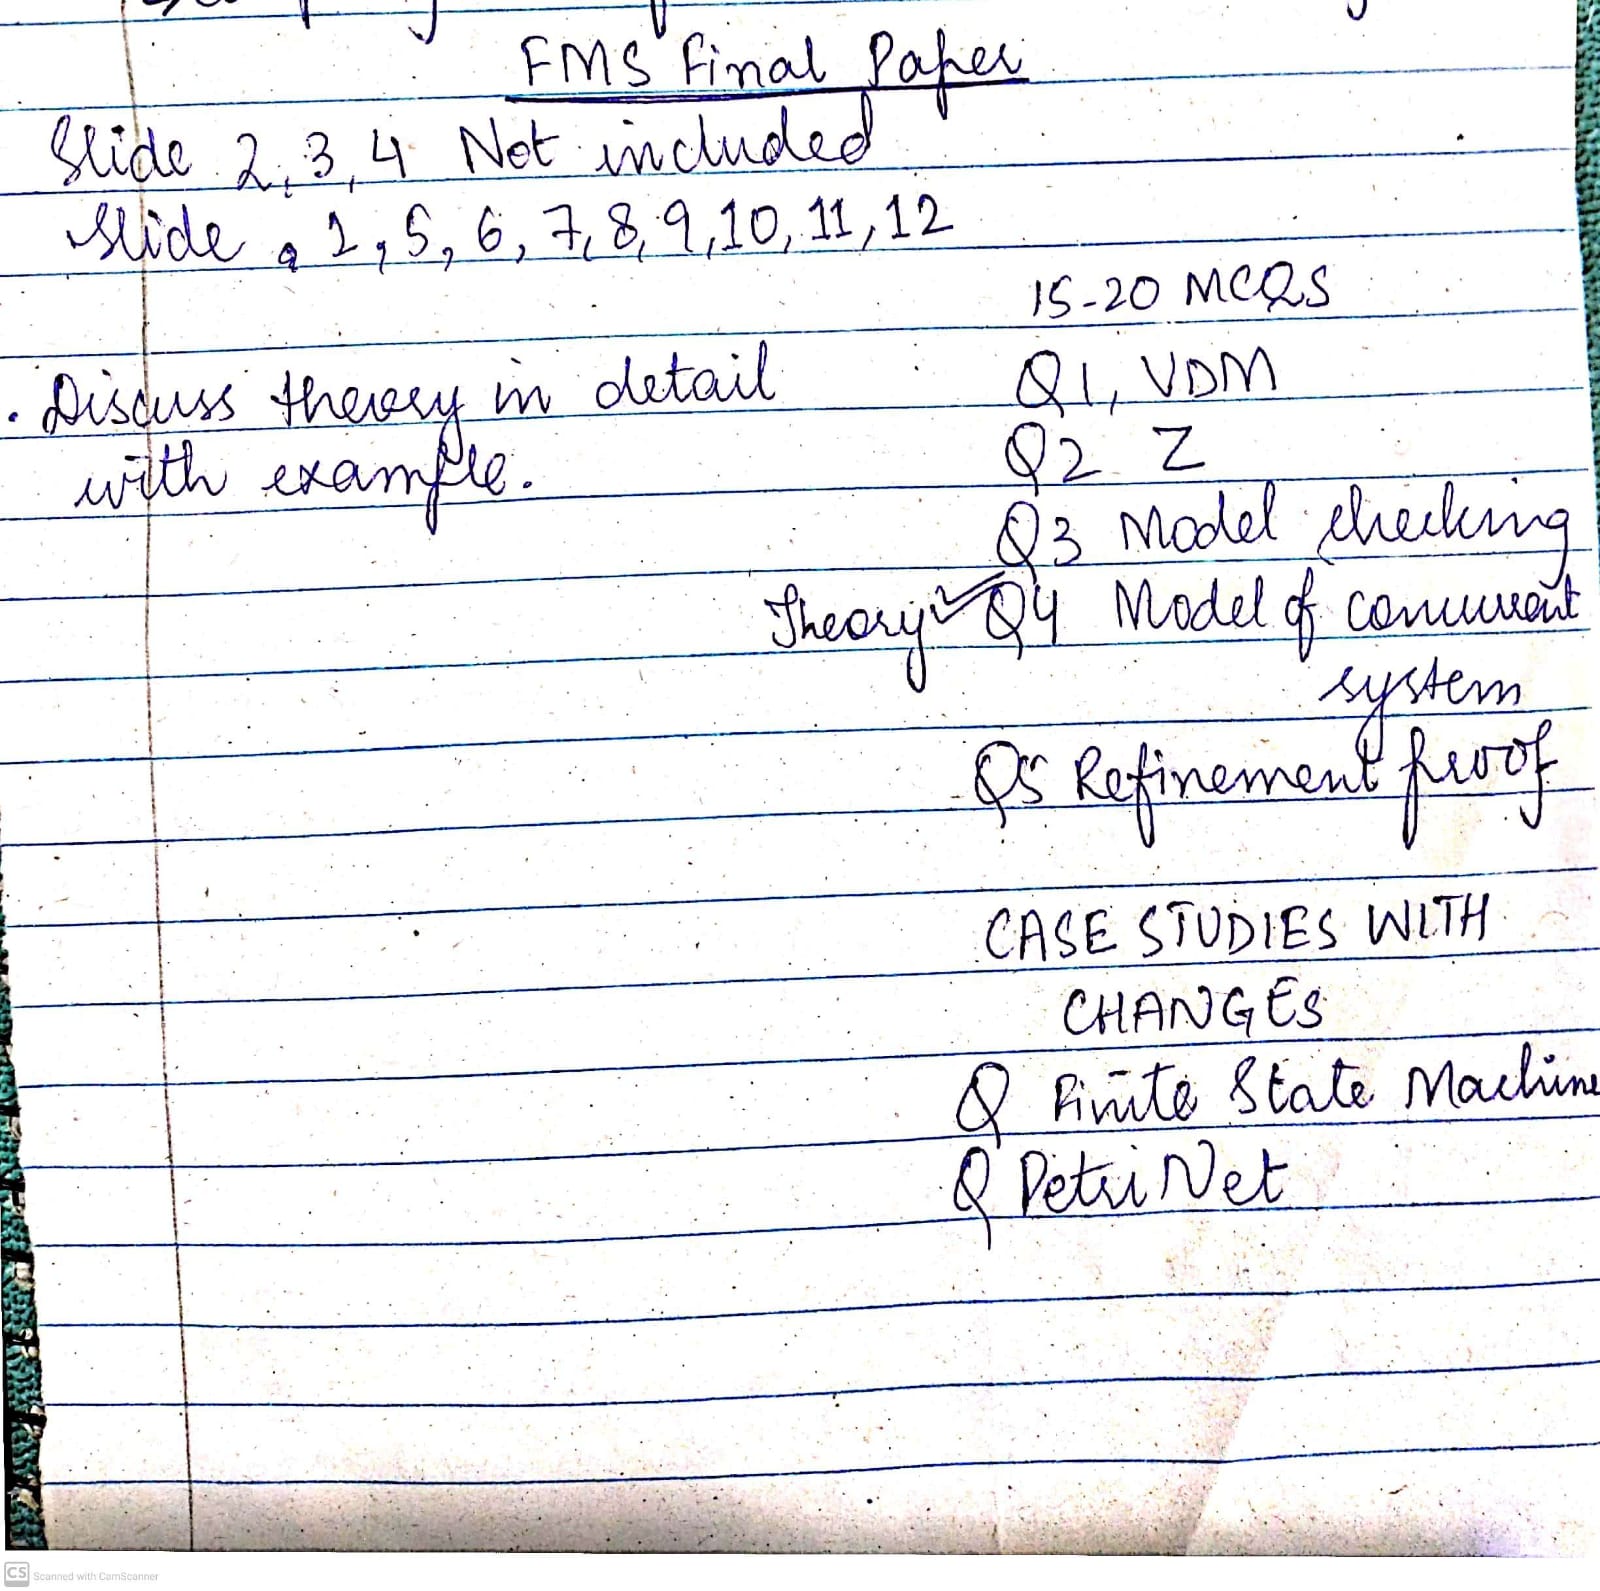 FMS Final Paper
Slide 2, 3, 4 Not included
Slide , 1, 5, 6, 7, 8, 9, 10, 11, 12
15-20 MCQS
. Discuss theory in detail
with example.
Q1, VDM
Q2 Z
Q3 Model checking
Theory ✓ Q4 Model of concurrent
system
Q5 Refinement proof
CASE STUDIES WITH
CHANGES
Q Finite State Machine
Q Petri Net
CS Scanned with CamScanner